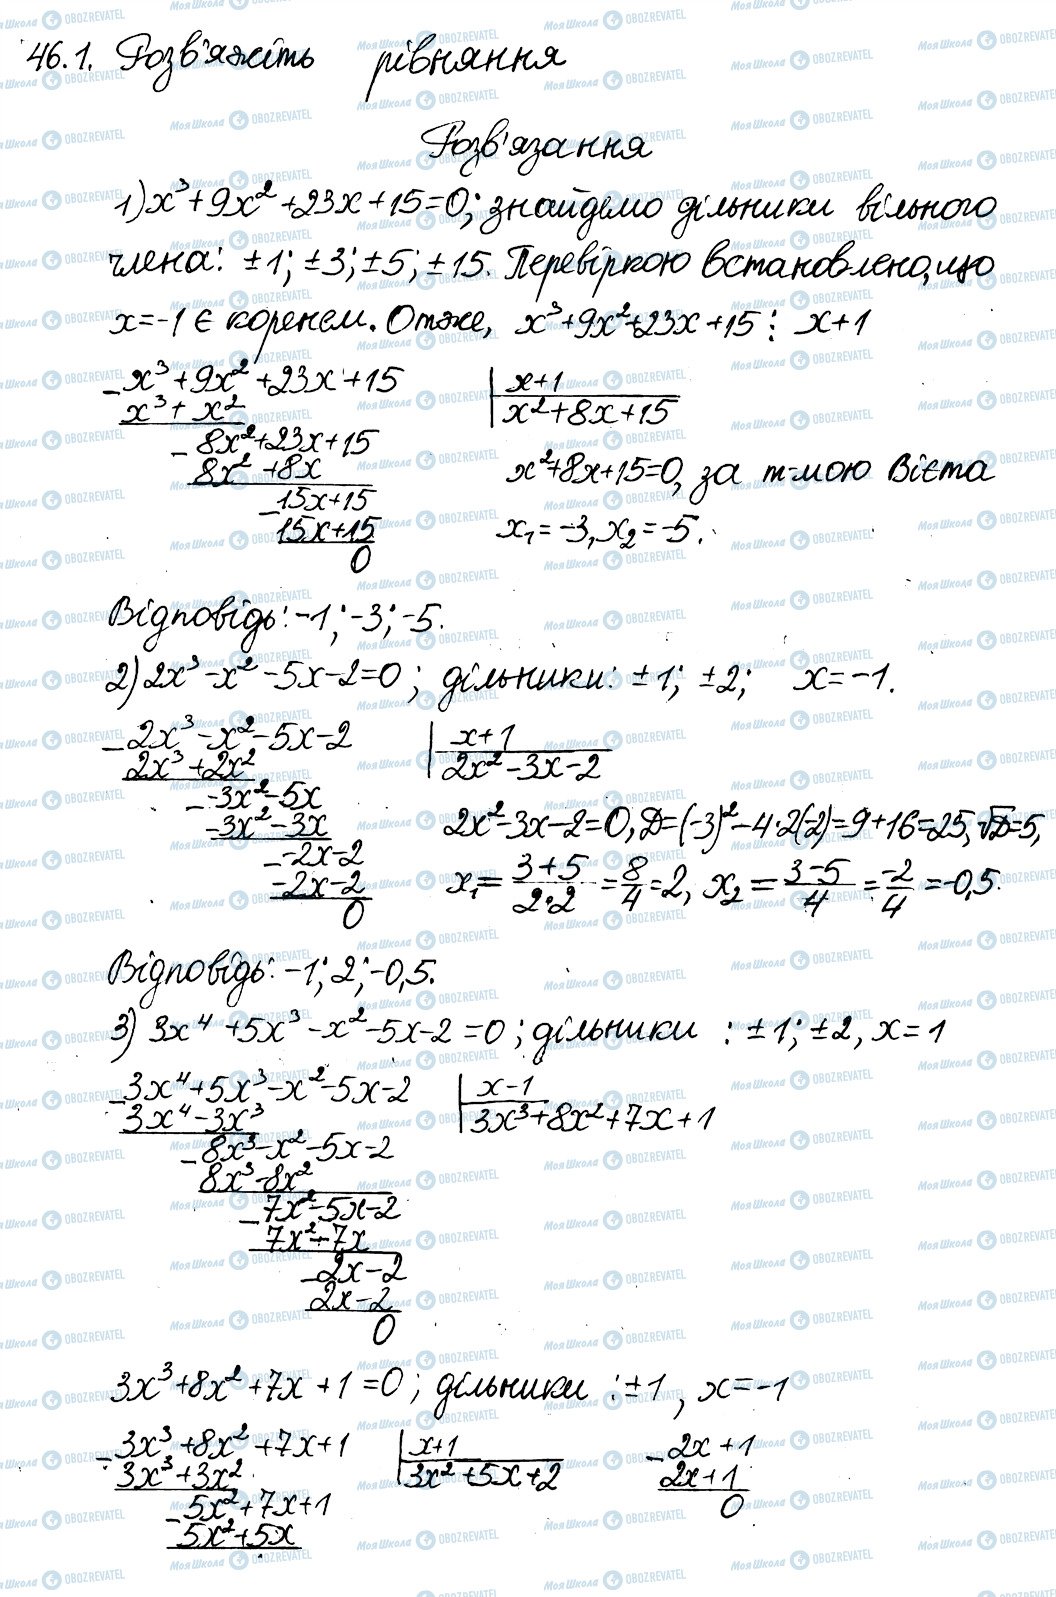 46.1. Розв'яжіть рівняння
Розв'язання
1) x³+9x²+23x+15=0; знайдемо дільники вільного
члена: ±1; ±3; ±5; ±15. Перевіркою встановлено, що
x=-1 є коренем. Отже, x³+9x²+23x+15 ⋮ x+1
- x³+9x²+23x+15 | x+1
x³+x² | x²+8x+15
- 8x²+23x+15
8x²+8x x²+8x+15=0, за т-мою Вієта
- 15x+15 x₁=-3, x₂=-5.
15x+15
0
Відповідь: -1; -3; -5.
2) 2x³-x²-5x-2=0; дільники: ±1; ±2; x=-1.
- 2x³-x²-5x-2 | x+1
2x³+2x² | 2x²-3x-2
- -3x²-5x
-3x²-3x 2x²-3x-2=0, D=(-3)²-4·2(-2)=9+16=25, √D=5,
- -2x-2 x₁=(3+5)/(2·2)=8/4=2, x₂=(3-5)/4=-2/4=-0,5.
-2x-2
0
Відповідь: -1; 2; -0,5.
3) 3x⁴+5x³-x²-5x-2=0; дільники: ±1; ±2, x=1
- 3x⁴+5x³-x²-5x-2 | x-1
3x⁴-3x³ | 3x³+8x²+7x+1
- 8x³-x²-5x-2
8x³-8x²
- 7x²-5x-2
7x²-7x
- 2x-2
2x-2
0
3x³+8x²+7x+1=0; дільники: ±1, x=-1
- 3x³+8x²+7x+1 | x+1 - 2x+1
3x³+3x² | 3x²+5x+2 2x+1
- 5x²+7x+1 0
5x²+5x